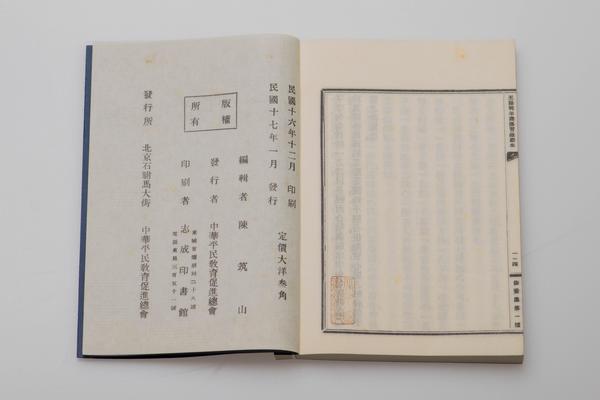 民國十六年十二月　印刷
民國十七年一月　發行
定價大洋叁角
版權所有
編輯者　陳筑山
發行者　中華平民敎育促進總會
印刷者　志成印書館
發行所　北京石駙馬大街　中華平民敎育促進總會
一一四